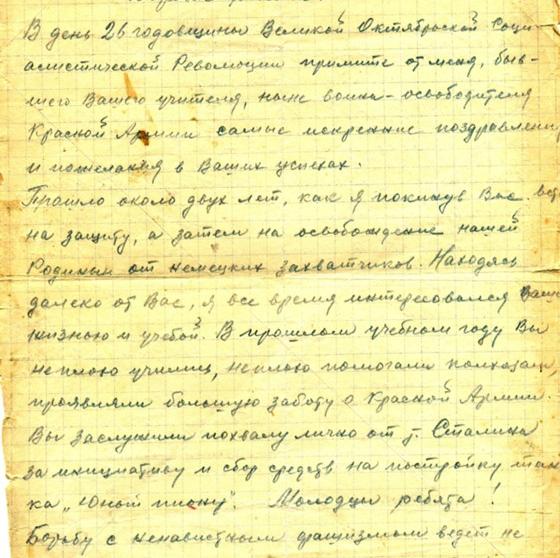 В день 26 годовщины Великой Октябрьской Соци-
алистической Революции примите от меня, быв-
шего Вашего учителя, ныне воина-освободителя
Красной Армии самые искренние поздравления
и пожелания в Ваших успехах.
Прошло около двух лет, как я покинув Вас
на защиту, а затем на освобождение нашей
Родины от немецких захватчиков. Находясь
далеко от Вас, я все время интересовался Вашей
жизнью и учебой. В прошлом учебном году Вы
неплохо учились, неплохо помогали колхозам,
проявляли большую заботу о Красной Армии.
Вы заслужили похвалу лично от т. Сталина
за инициативу и сбор средств на постройку тан-
ка „Юный пионер". Молодцы ребята!
Борьбу с ненавистным фашизмом ведет не